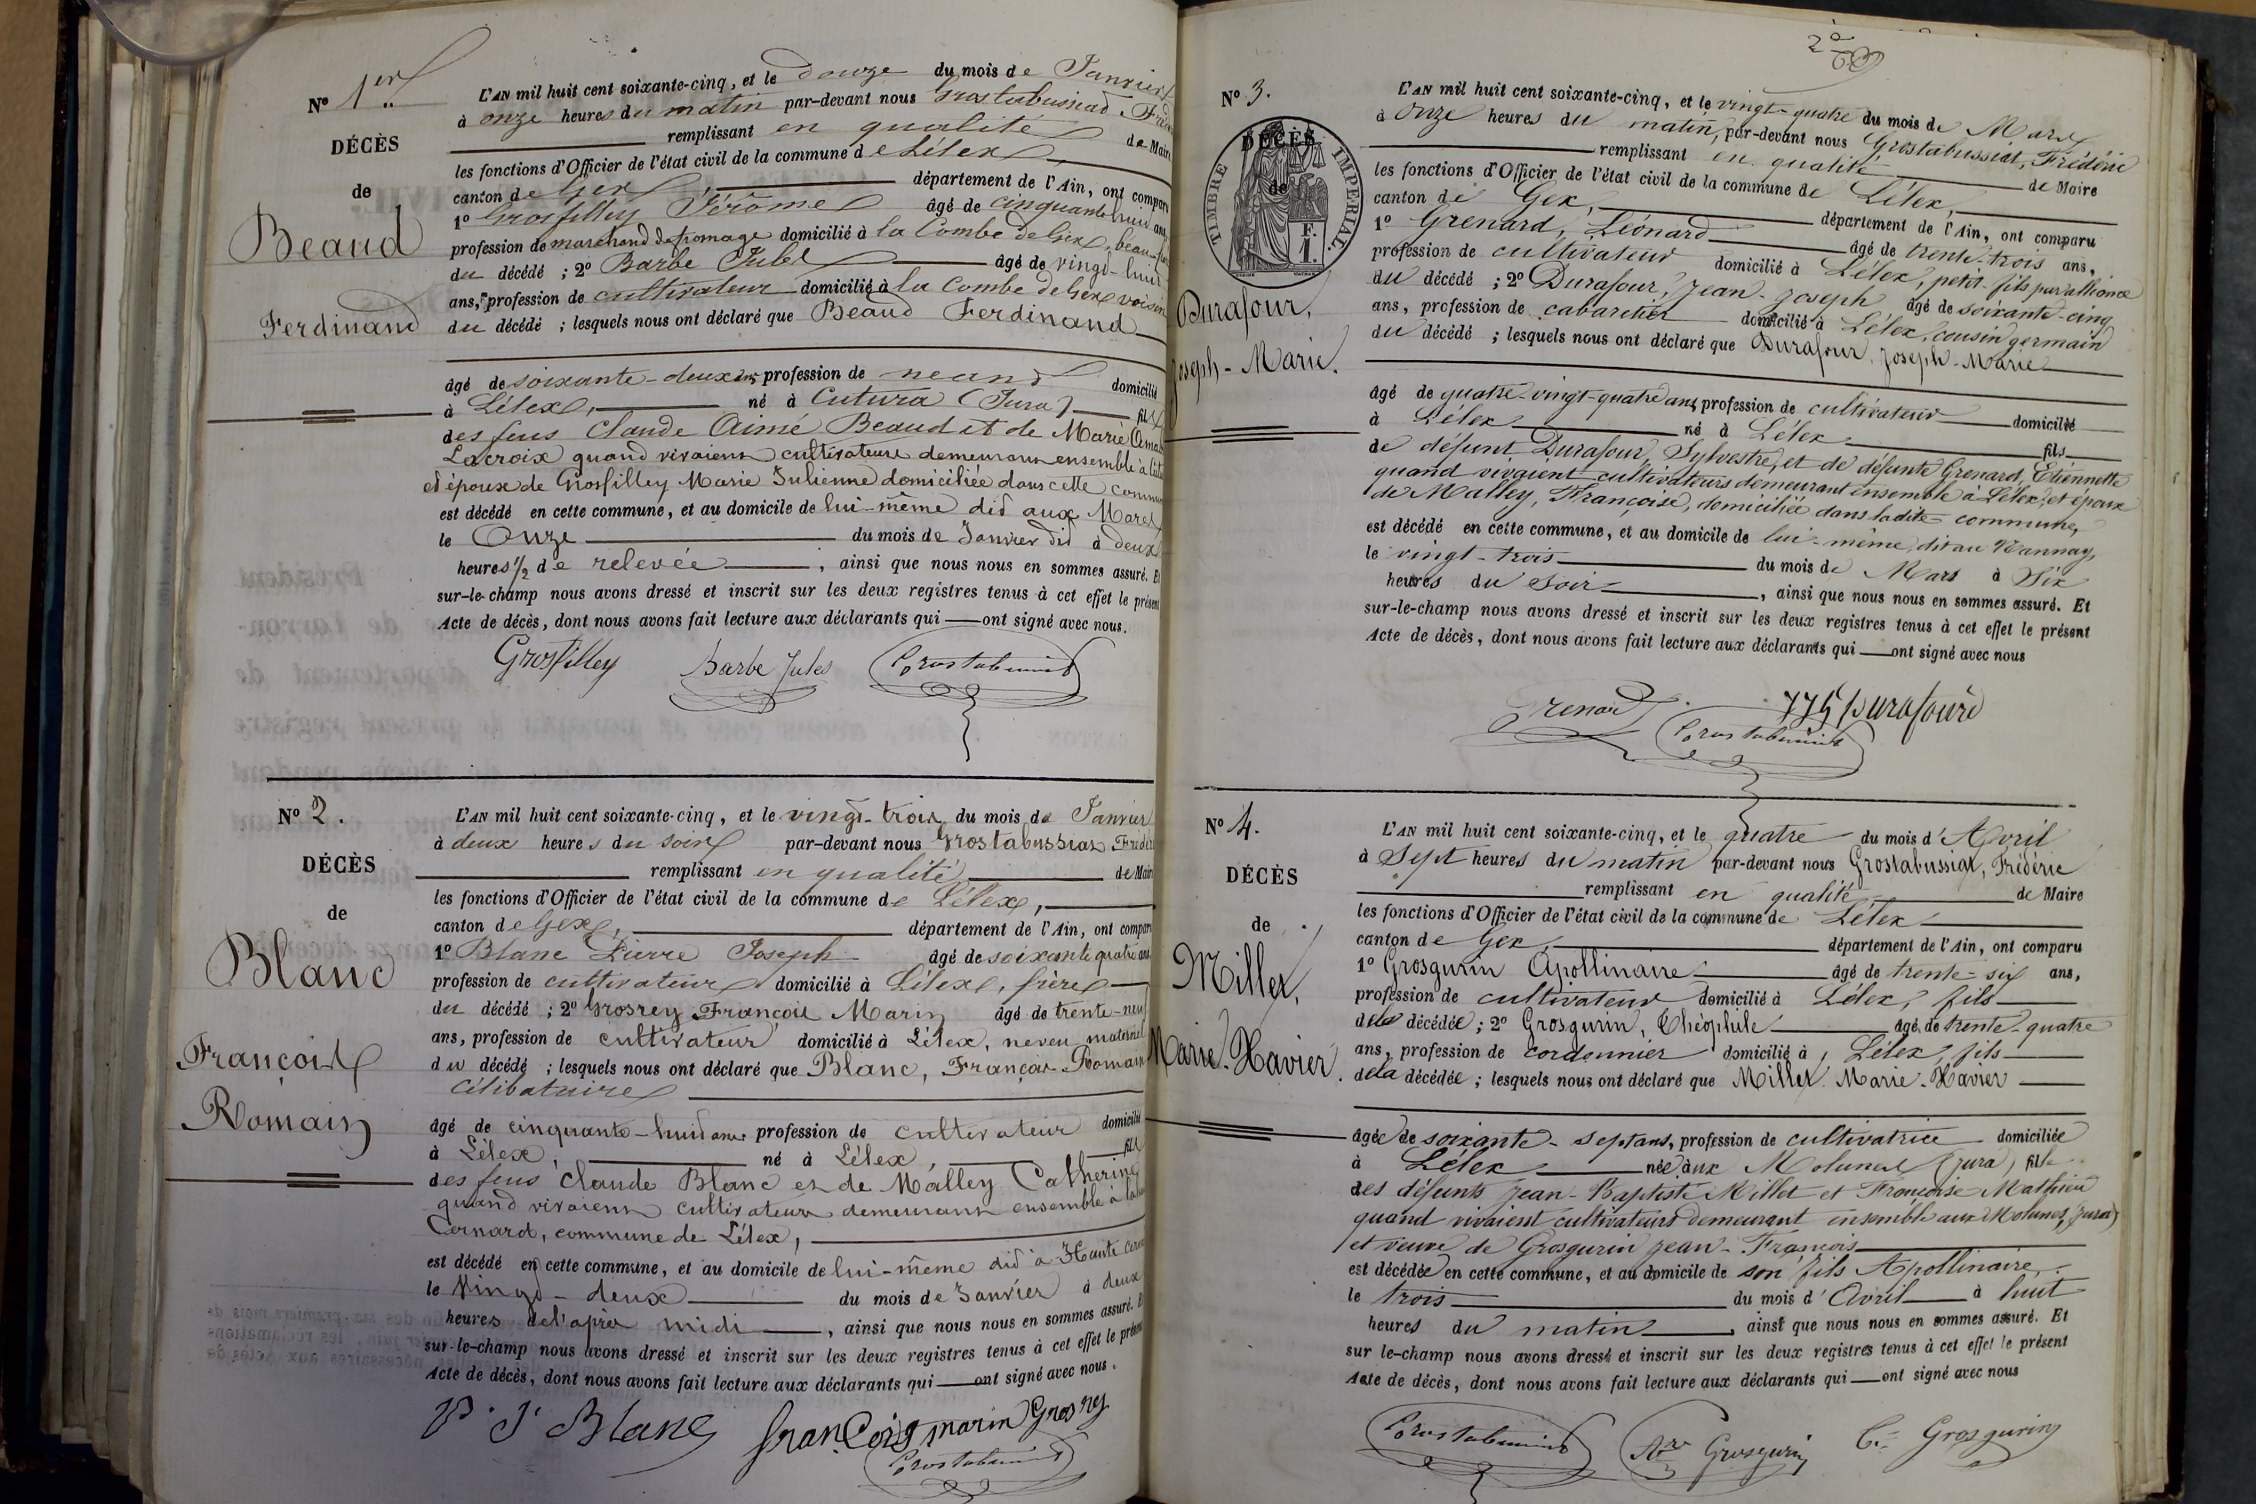 Nº 1er
DÉCÈS
de
Beaud
Ferdinand
L'AN mil huit cent soixante-cinq, et le douze du mois de Janvier
à onze heures du matin par-devant nous Grostabussiat, Fréd
remplissant en qualité de Maire
les fonctions d'Officier de l'état civil de la commune de Lélex
canton de Gex département de l'Ain, ont comparu
1º Grosfilley Jérôme âgé de cinquante huit ans,
profession de marchand de fromage domicilié à la Combe de Gex, beau-frère
du décédé ; 2º Barbe Jules âgé de vingt-huit
ans, profession de cultivateur domicilié à la Combe de Gex voisin
du décédé ; lesquels nous ont déclaré que Beaud Ferdinand
âgé de soixante-deux ans profession de néant domicilié
à Lélex, né à Cutura (Jura) fils
des feus Claude Aimé Beaud et de Marie
Lacroix quand vivaient cultivateurs demeurant ensemble à
et époux de Grosfilley Marie Julienne domiciliée dans cette commune
est décédé en cette commune, et au domicile de lui-même dit aux Marets
le Onze du mois de Janvier dit à deux
heures 1/2 de relevée , ainsi que nous nous en sommes assuré. Et
sur-le-champ nous avons dressé et inscrit sur les deux registres tenus à cet effet le présent
Acte de décès, dont nous avons fait lecture aux déclarants qui ont signé avec nous.
Grosfilley Barbe Jules Grostabussiat
Nº 2.
DÉCÈS
de
Blanc
François
Romain
L'AN mil huit cent soixante-cinq, et le vingt-trois du mois de Janvier
à deux heures du soir par-devant nous Grostabussiat Frédér
remplissant en qualité de Maire
les fonctions d'Officier de l'état civil de la commune de Lélex,
canton de Gex, département de l'Ain, ont comparu
1º Blanc Pierre Joseph âgé de soixante quatre ans
profession de cultivateur domicilié à Lélex, frère
du décédé ; 2º Grosrey François Marin âgé de trente-neuf
ans, profession de cultivateur domicilié à Lélex, neveu maternel
du décédé ; lesquels nous ont déclaré que Blanc, François Romain
Célibataire
âgé de cinquante-huit ans profession de cultivateur domicilié
à Lélex, né à Lélex, fils
des feus Claude Blanc et de Malley Catherine
quand vivaient cultivateurs demeurant ensemble à
Cernard, commune de Lélex,
est décédé en cette commune, et au domicile de lui-même dit à Haute
le Vingt-deux du mois de Janvier à deux
heures de l'après midi , ainsi que nous nous en sommes assuré. Et
sur-le-champ nous avons dressé et inscrit sur les deux registres tenus à cet effet le présent
Acte de décès, dont nous avons fait lecture aux déclarants qui ont signé avec nous.
P. J Blanc François marin Grosrey
Grostabussiat
Nº 3.
DÉCÈS
de
TIMBRE IMPERIAL
F.
1.
Durafour,
Joseph-Marie.
L'AN mil huit cent soixante-cinq, et le vingt-quatre du mois de Mars
à Onze heures du matin, par-devant nous Grostabussiat, Frédéric
remplissant en qualité de Maire
les fonctions d'Officier de l'état civil de la commune de Lélex,
canton de Gex, département de l'Ain, ont comparu
1º Grenard, Léonard âgé de trente-trois ans,
profession de cultivateur domicilié à Lélex, petit-fils par alliance
du décédé ; 2º Durafour, Jean-Joseph âgé de soixante-cinq
ans, profession de cabaretier domicilié à Lélex, cousin germain
du décédé ; lesquels nous ont déclaré que Durafour, Joseph-Marie
âgé de quatre-vingt-quatre ans, profession de cultivateur domicilié
à Lélex né à Lélex fils
de défunt Durafour, Sylvestre, et de défunte Grenard, Etiennette
quand vivaient cultivateurs demeurant ensemble à Lélex, et époux
de Malley, Françoise, domiciliée dans ladite commune,
est décédé en cette commune, et au domicile de lui-même, dit au Nannay,
le vingt-trois du mois de Mars à Six
heures du soir , ainsi que nous nous en sommes assuré. Et
sur-le-champ nous avons dressé et inscrit sur les deux registres tenus à cet effet le présent
Acte de décès, dont nous avons fait lecture aux déclarants qui ont signé avec nous
Grenard Durafour
Grostabussiat
Nº 4.
DÉCÈS
de
Millet,
Marie-Xavier.
L'AN mil huit cent soixante-cinq, et le quatre du mois d'Avril
à Sept heures du matin par-devant nous Grostabussiat, Frédéric
remplissant en qualité de Maire
les fonctions d'Officier de l'état civil de la commune de Lélex
canton de Gex, département de l'Ain, ont comparu
1º Grosgurin Apollinaire âgé de trente-six ans,
profession de cultivateur domicilié à Lélex, fils
de la décédée ; 2º Grosgurin, Théophile âgé de trente-quatre
ans, profession de cordonnier domicilié à Lélex, fils
de la décédée ; lesquels nous ont déclaré que Millet Marie-Xavier
âgée de soixante-sept ans, profession de cultivatrice domiciliée
à Lélex née aux Molunes (Jura) fille
des défunts Jean-Baptiste Millet et Françoise Mathieu
quand vivaient cultivateurs demeurant ensemble aux Molunes, (Jura)
et veuve de Grosgurin Jean-François
est décédée en cette commune, et au domicile de son fils Apollinaire,
le trois du mois d'Avril à huit
heures du matin , ainsi que nous nous en sommes assuré. Et
sur le-champ nous avons dressé et inscrit sur les deux registres tenus à cet effet le présent
Acte de décès, dont nous avons fait lecture aux déclarants qui ont signé avec nous
Grostabussiat Grosgurin Grosgurin